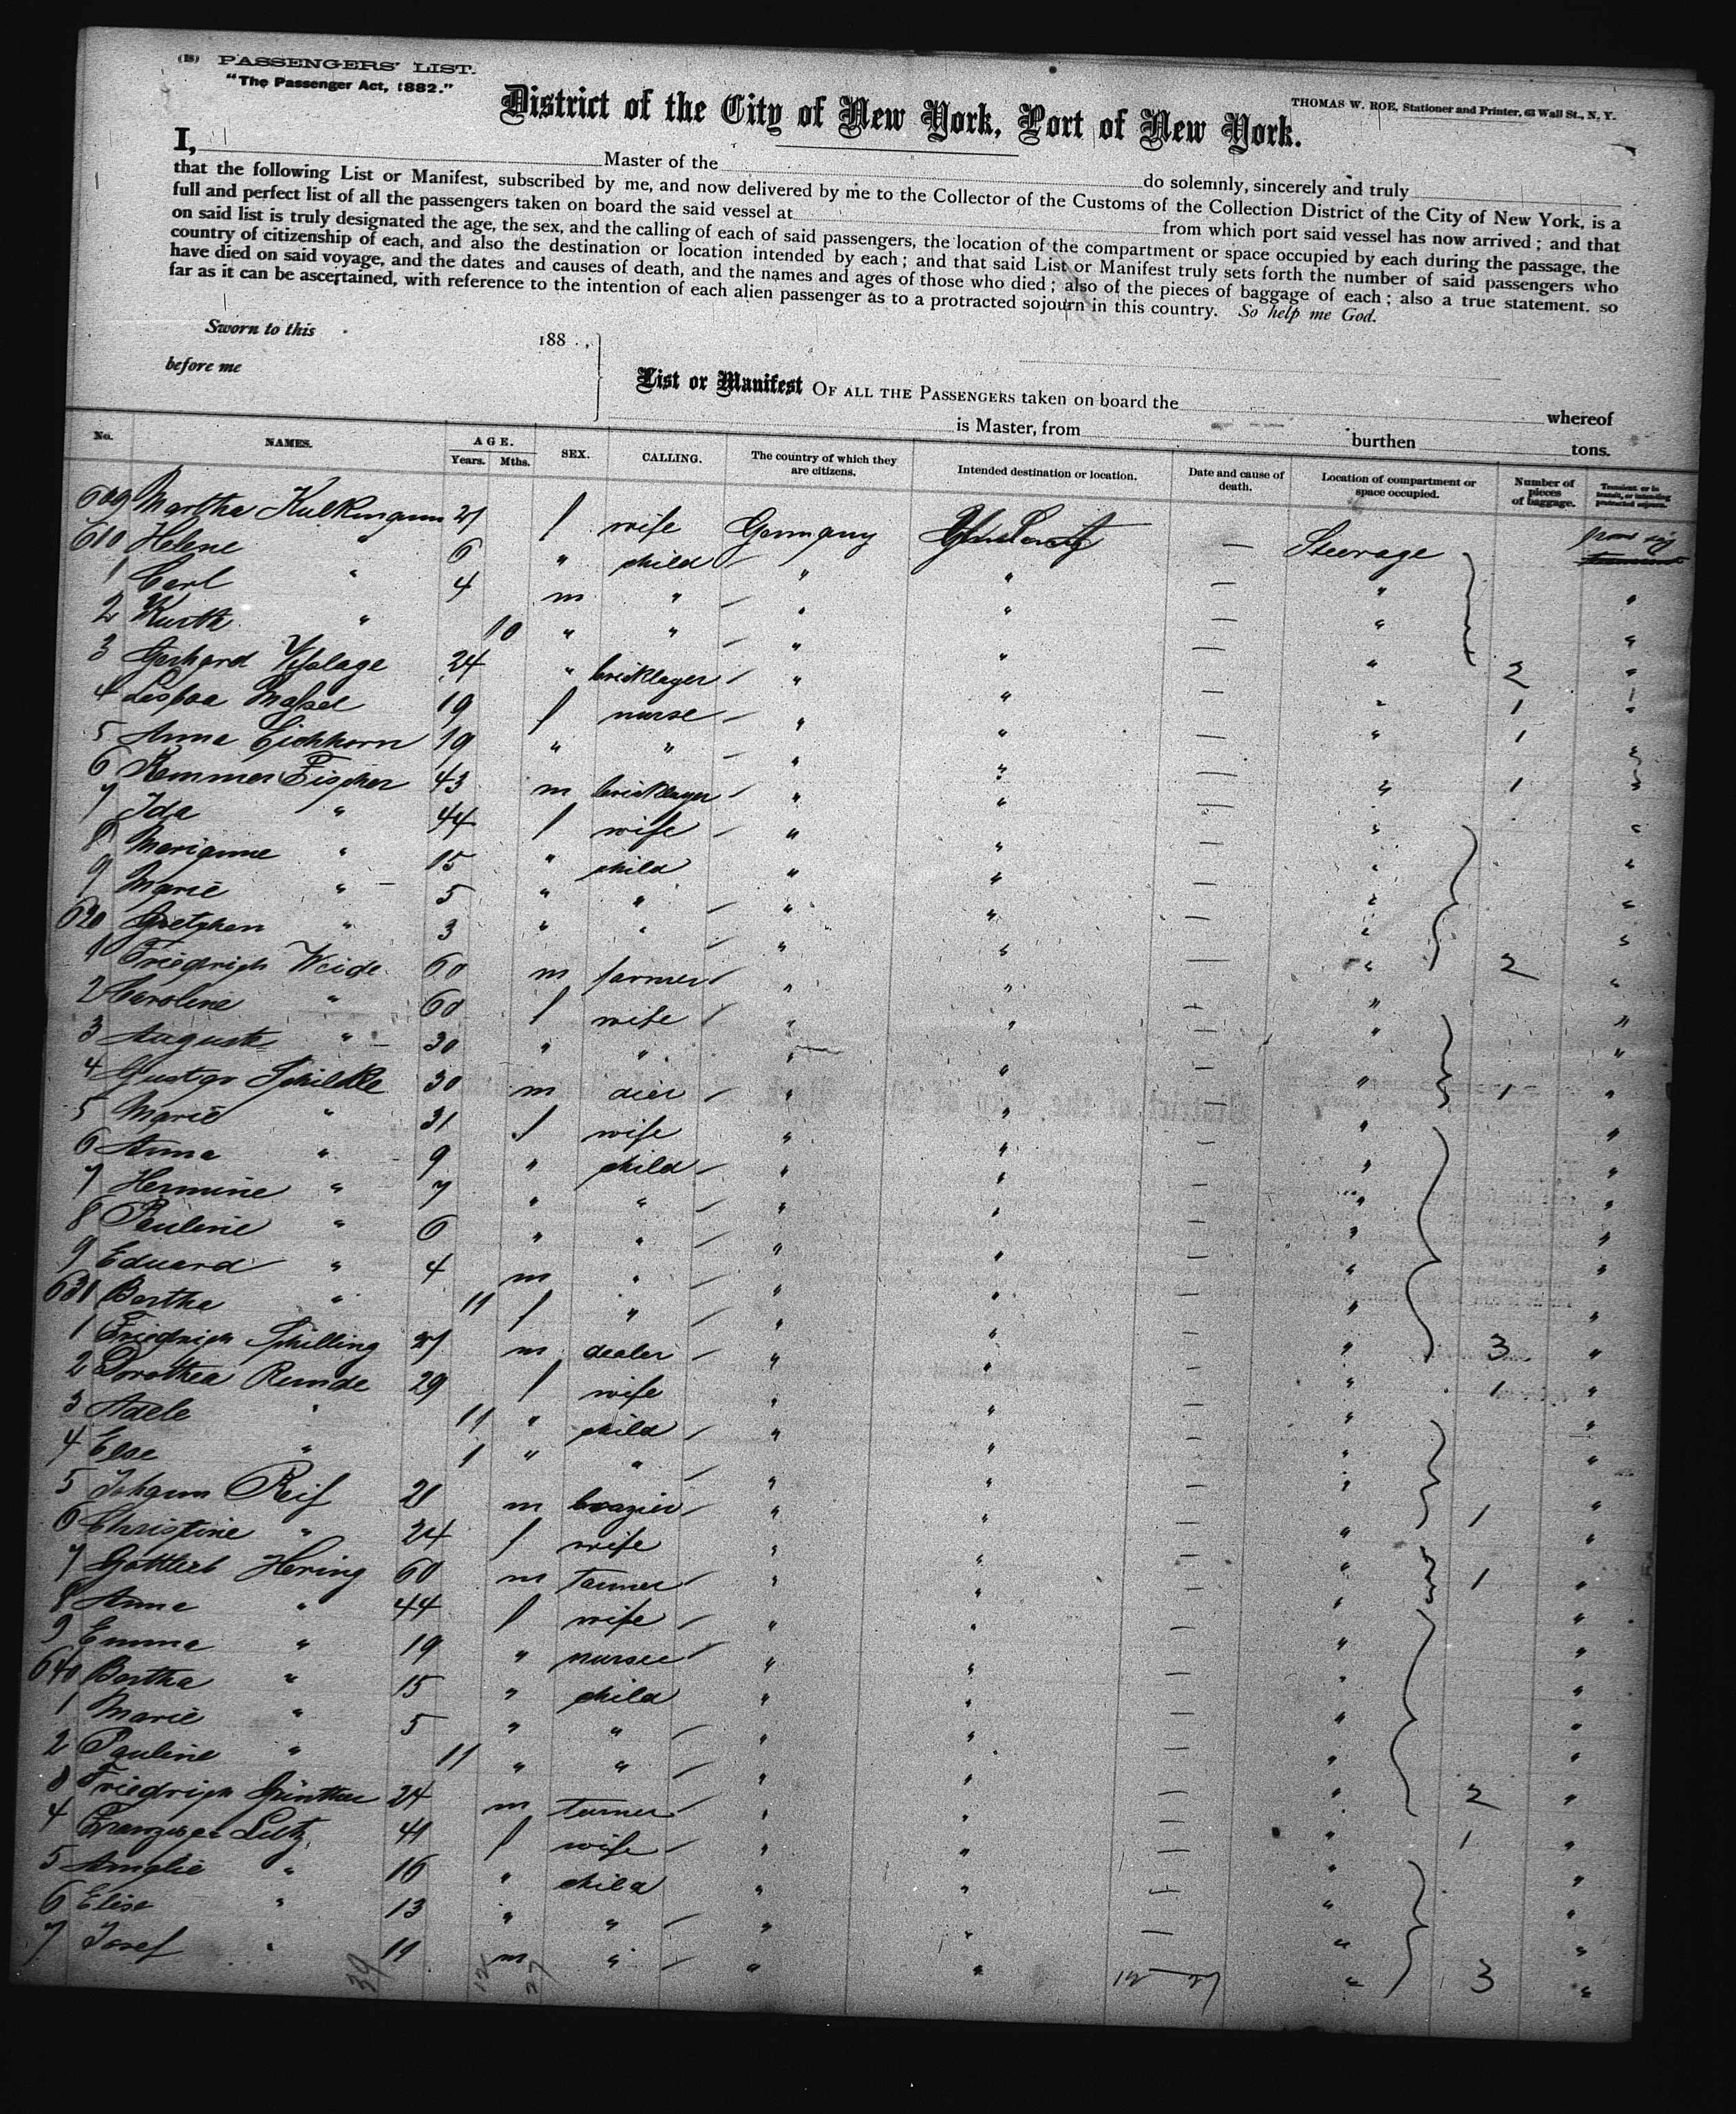 (18) PASSENGERS' LIST.
"The Passenger Act, 1882."
THOMAS W. ROE, Stationer and Printer, 63 Wall St., N. Y.
District of the City of New York, Port of New York.
I, Master of the do solemnly, sincerely and truly
that the following List or Manifest, subscribed by me, and now delivered by me to the Collector of the Customs of the Collection District of the City of New York, is a
full and perfect list of all the passengers taken on board the said vessel at from which port said vessel has now arrived; and that
on said list is truly designated the age, the sex, and the calling of each of said passengers, the location of the compartment or space occupied by each during the passage, the
country of citizenship of each, and also the destination or location intended by each; and that said List or Manifest truly sets forth the number of said passengers who
have died on said voyage, and the dates and causes of death, and the names and ages of those who died; also of the pieces of baggage of each; also a true statement, so
far as it can be ascertained, with reference to the intention of each alien passenger as to a protracted sojourn in this country. So help me God.
Sworn to this 188 ,
before me
List or Manifest OF ALL THE PASSENGERS taken on board the whereof
is Master, from burthen tons.
No. NAMES. AGE. Years. Mths. SEX. CALLING. The country of which they are citizens. Intended destination or location. Date and cause of death. Location of compartment or space occupied. Number of pieces of baggage. Transient or in transit, or intending protracted sojourn.
609 Martha Kulkmann 27 f wife Germany — Steerage
610 Helene " 6 " child " " — " "
1 Carl " 4 m " " " — " "
2 Kurth " 10 " " " " — " 2 "
3 Gerhard 24 " bricklayer " " — " 1 "
4 19 f nurse " " — " 1 "
5 Anna Eichhorn 19 " " " " — " 1 "
6 Fischer 43 m bricklayer " " — " "
7 Ida " 44 f wife " " — " "
8 Marianne " 15 " child " " — " "
9 Marie " 5 " " " " — " "
620 Gretchen " 3 " " " " — " 2 "
1 Friedrich Weide 60 m farmer " " — " "
2 Caroline " 60 f wife " " — " "
3 Auguste " 30 " " " " — " 1 "
4 Gustav Schildke 30 m dier " " — " "
5 Marie " 31 f wife " " — " "
6 Anna " 9 " child " " — " "
7 Hermine " 7 " " " " — " "
8 Pauline " 6 " " " " — " "
9 Eduard " 4 m " " " — " "
630 Bertha " 11 f " " " — " 3 "
1 Friedrich Schilling 27 m dealer " " — " 1 "
2 Dorothea Runde 29 f wife " " — " "
3 Adele " 11 " child " " — " "
4 Else " 1 " " " " — " 1 "
5 Johann Reif 21 m brazier " " — " "
6 Christine " 24 f wife " " — " 1 "
7 Gottlieb Hering 60 m Tanner " " — " "
8 Anna " 44 f wife " " — " "
9 Emma " 19 " nurse " " — " "
640 Bertha " 15 " child " " — " "
1 Marie " 5 " " " " — " "
2 Pauline " 11 " " " " — " 2 "
3 Friedrich Günther 24 m turner " " — " 1 "
4 Lutz 41 f wife " " — " "
5 Amalie " 16 " child " " — " "
6 Elise " 13 " " " " — " "
7 Josef " 11 m " " " " 3 "
39 12 27 12 — 27